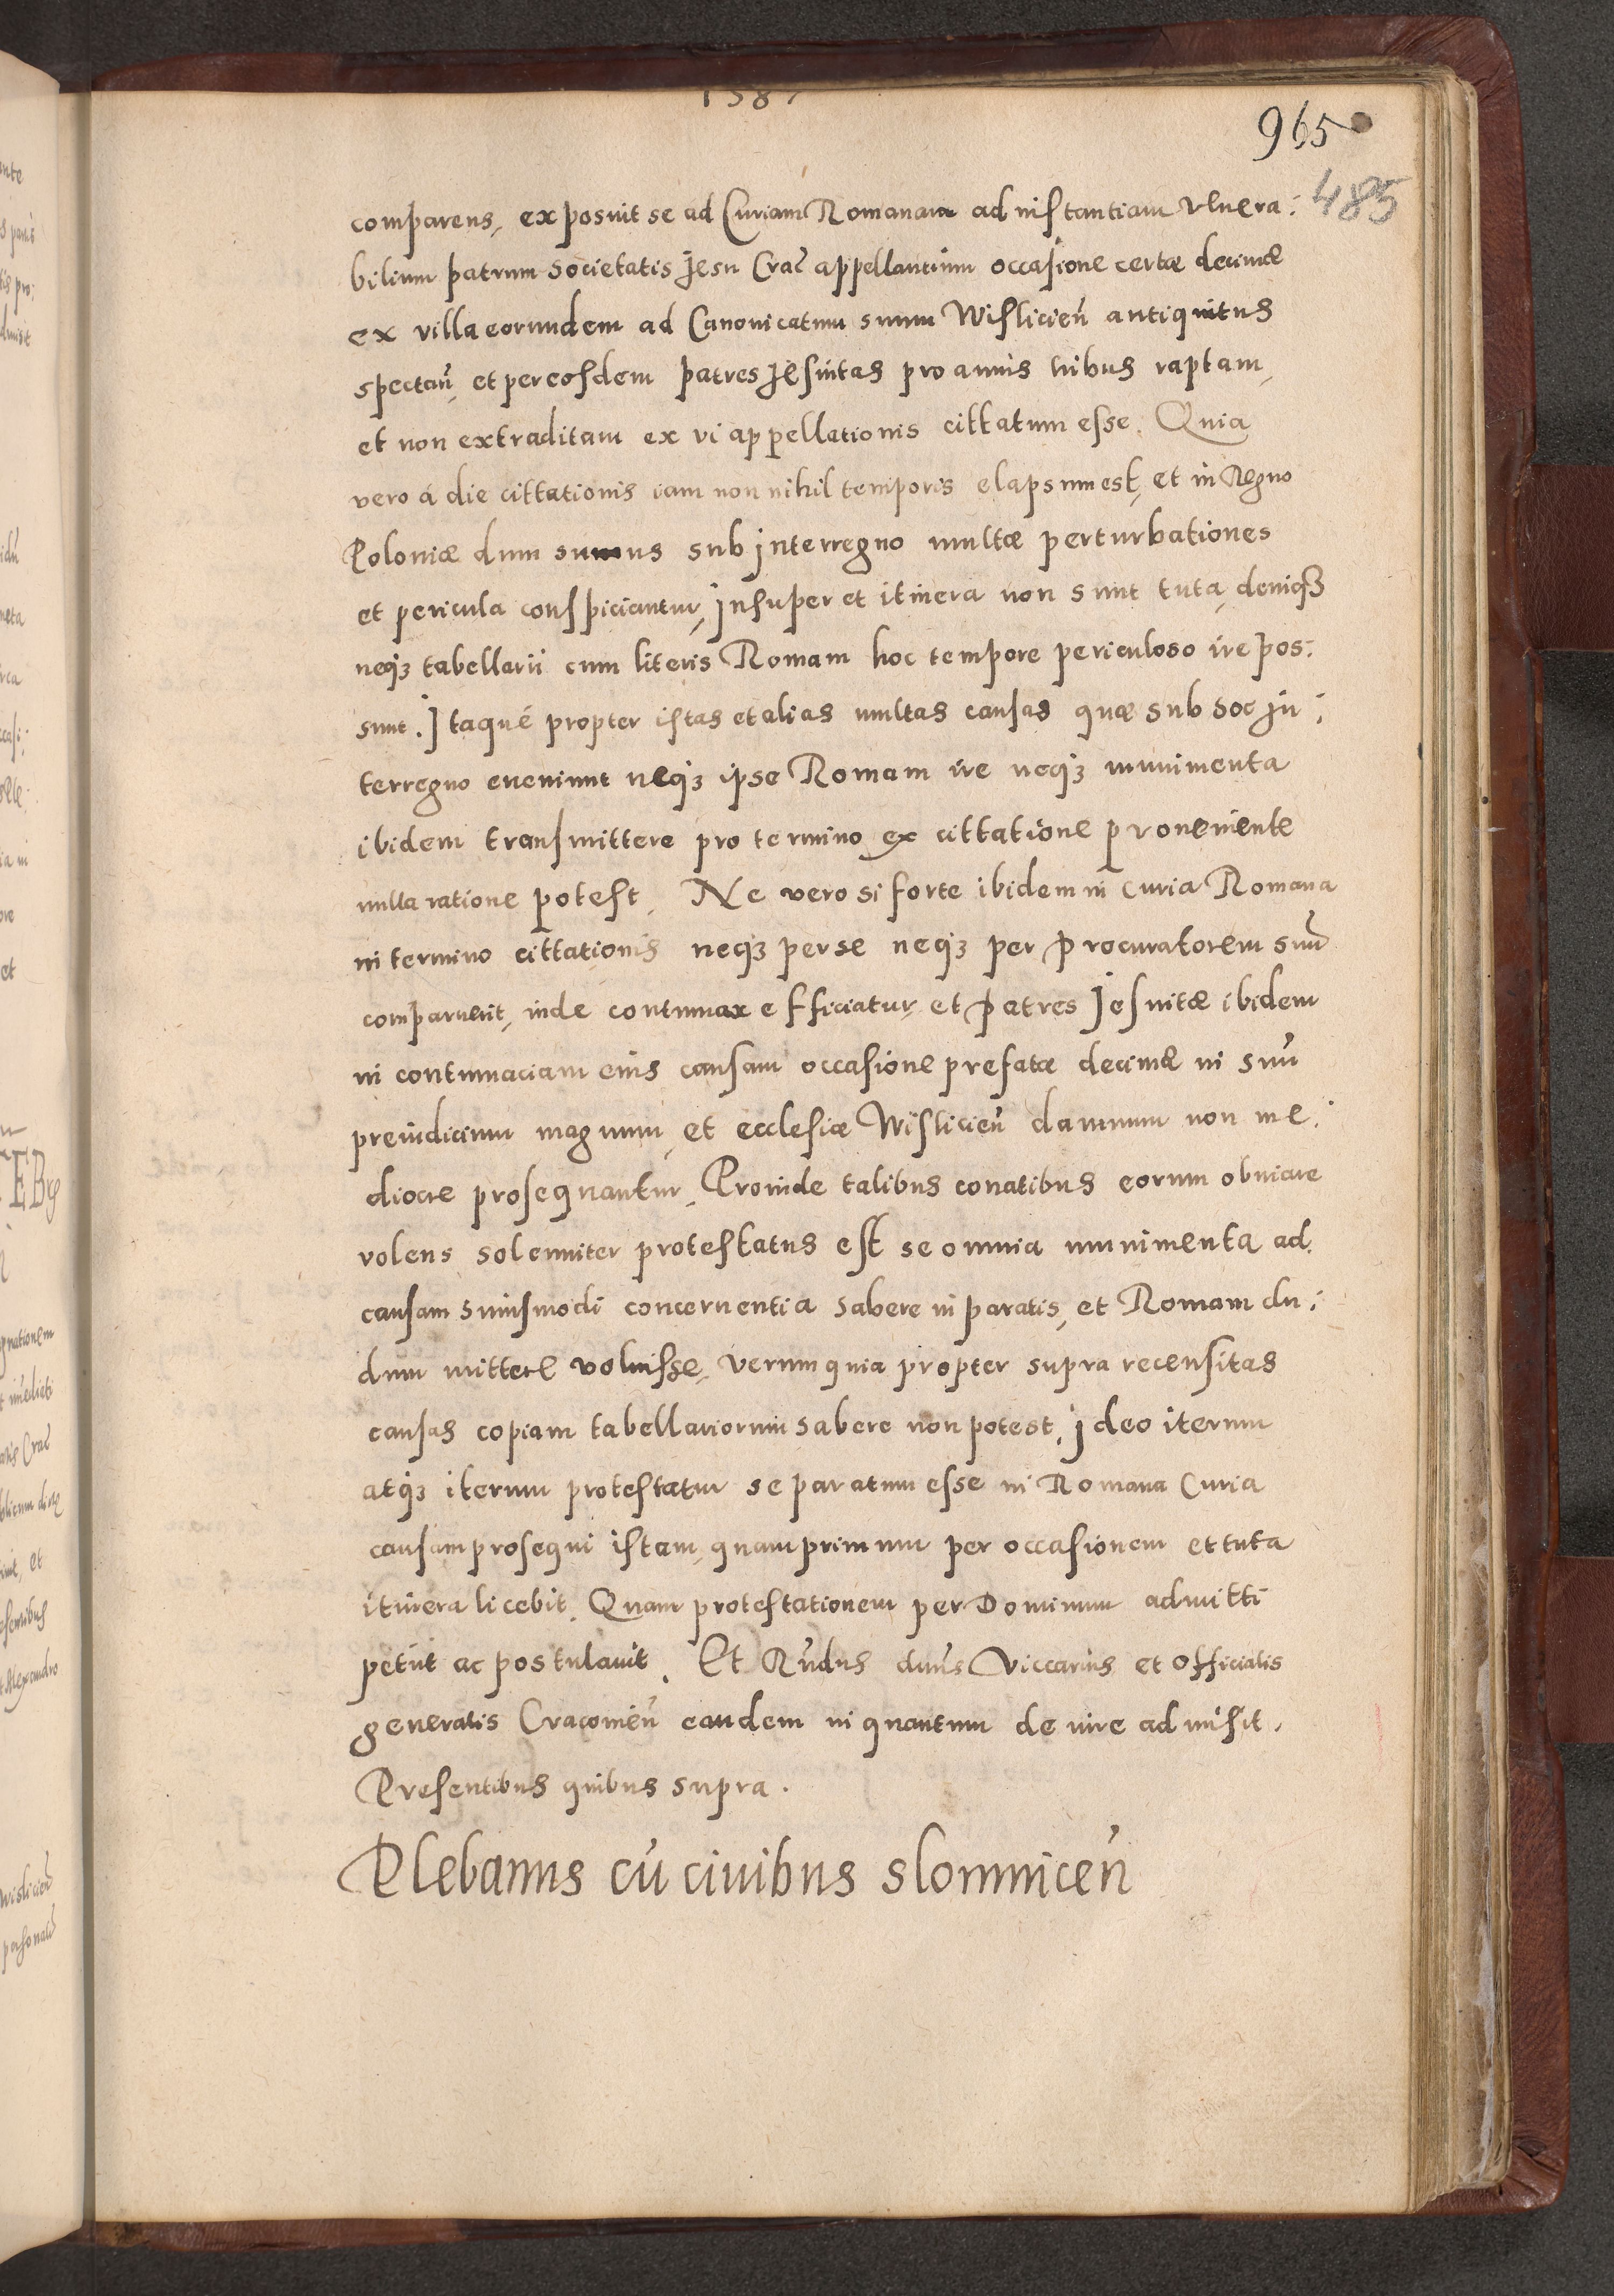 1587
965
485
comparens, exposuit se ad Curiam Romanam ad instantiam Venera:
bilium patrum Societatis Jesu Crac̃ appellantium occasione certæ decimæ
ex villa eorundem ad Canonicatum suum Wislicień antiquitus
spectań, et per eosdem patres Jesuitas pro annis tribus raptam,
et non extraditam ex vi appellationis cittatum esse. Quia
vero á die cittationis iam non nihil temporis elapsum est, et in Regno
Poloniæ dum sumus sub jnterregno multæ perturbationes
et pericula conspiciantur, jnsuper et itinera non sunt tuta, deniqꝫ
neqꝫ tabellarii cum literis Romam hoc tempore periculoso ire pos:
sunt. Jtaqué propter istas et alias multas causas quæ sub hoc jn:
terregno eveniunt neqꝫ ipse Romam ire neqꝫ munimenta
ibidem transmittere pro termino ex cittatione proveniente
nulla ratione potest. Ne vero si forte ibidem in curia Romana
in termino cittationis neqꝫ per se neqꝫ per procuratorem suũ
comparuerit, inde contumax efficiatur, et patres Jesuitæ ibidem
in contumaciam eius causam occasione prefatæ decimæ in suũ
preiudicium magnum, et ecclesiæ Wislicień damnum non me:
diocre prosequantur, Proinde talibus conatibus eorum obviare
volens solenniter protestatus est se omnia munimenta ad
causam huiusmodi concernentia habere in paratis, et Romam du:
dum mittere voluisse, verum quia propter supra recensitas
causas copiam tabellariorum habere non potest, jdeo iterum
atqꝫ iterum protestatur se paratum esse in Romana Curia
causam prosequi istam, quamprimum per occasionem et tuta
itinera licebit. Quam protestationem per Dominum admitti
petiit ac postulavit. Et Rñdus dnũs Viccarius et Officialis
generalis Cracovień eandem in quantum de iure admisit.
Presentibus quibus supra.
Plebanus cũ civibus slomniceń